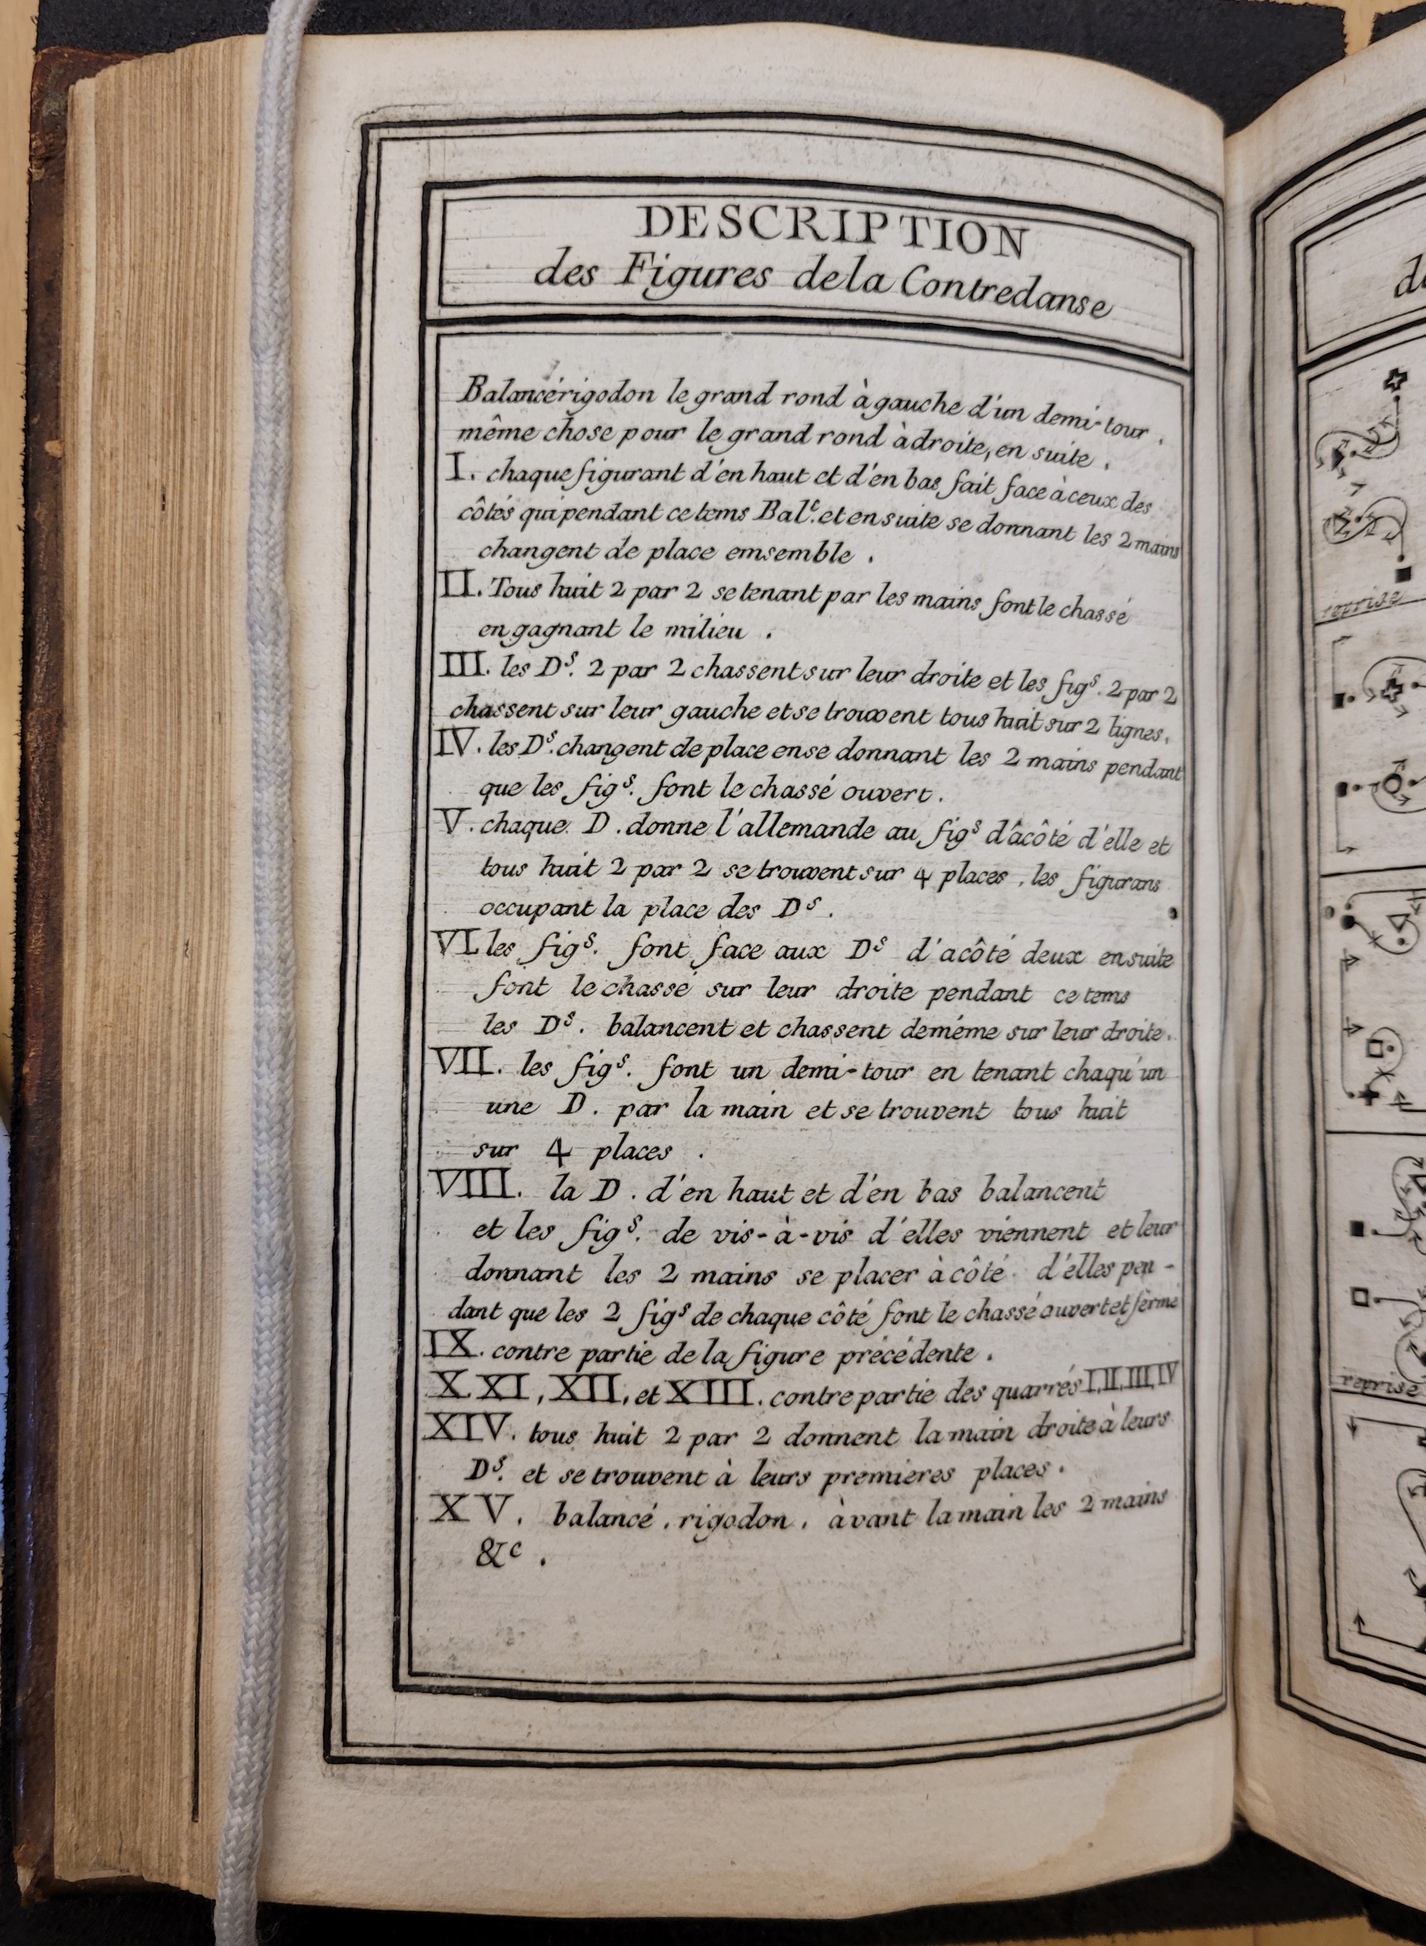 DESCRIPTION
des Figures dela Contredanse
Balancérigodon le grand rond à gauche d'un demi-tour.
même chose pour le grand rond à droite, en suite.
I. chaque figurant d'en haut et d'en bas fait face à ceux des
côtés qui pendant ce tems Bal.ᵉ et en suite se donnant les 2 mains
changent de place emsemble.
II. Tous huit 2 par 2 se tenant par les mains font le chassé
en gagnant le milieu.
III. les Dˢ. 2 par 2 chassent sur leur droite et les figˢ. 2 par 2
chassent sur leur gauche et se trouvent tous huit sur 2 lignes.
IV. les Dˢ. changent de place en se donnant les 2 mains pendant
que les figˢ. font le chassé ouvert.
V. chaque D. donne l'allemande au figˢ d'âcôté d'elle et
tous huit 2 par 2 se trouvent sur 4 places, les figurans
occupant la place des Dˢ.
VI. les figˢ. font face aux Dˢ d'acôté deux ensuite
font le chassé sur leur droite pendant ce tems
les Dˢ. balancent et chassent deméme sur leur droite.
VII. les figˢ. font un demi-tour en tenant chaqu'un
une D. par la main et se trouvent tous huit
sur 4 places.
VIII. la D. d'en haut et d'en bas balancent
et les figˢ. de vis-à-vis d'elles viennent et leur
donnant les 2 mains se placer à côté d'elles pen-
dant que les 2 figˢ de chaque côté font le chassé ouvert et fermé
IX. contre partie de la figure précédente.
X. XI, XII, et XIII. contre partie des quarrés I, II, III, IV
XIV. tous huit 2 par 2 donnent la main droite à leurs
Dˢ. et se trouvent à leurs premieres places.
XV. balancé, rigodon, àvant la main les 2 mains
&ᶜ.
reprise
reprise